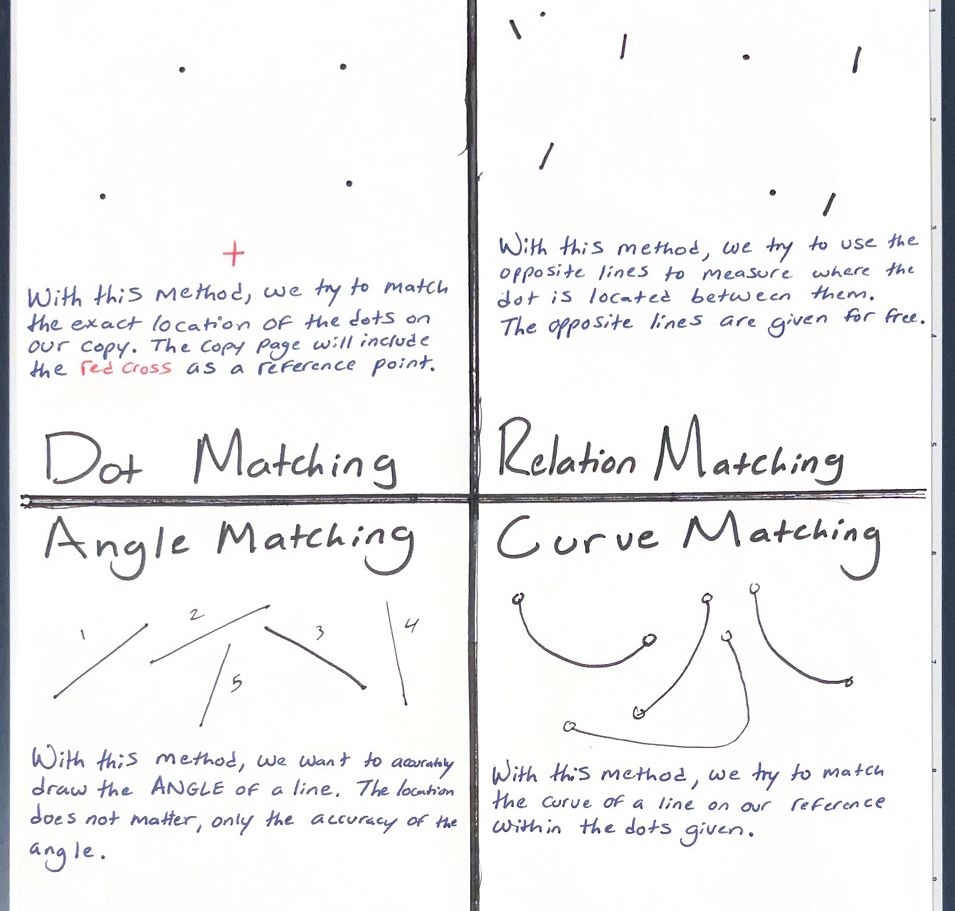 With this method, we try to match
the exact location of the dots on
our copy. The copy page will include
the red cross as a reference point.
Dot Matching
With this method, we try to use the
opposite lines to measure where the
dot is located between them.
The opposite lines are given for free.
Relation Matching
Angle Matching
1
2
3
4
5
With this method, we want to accurately
draw the ANGLE of a line. The location
does not matter, only the accuracy of the
angle.
Curve Matching
With this method, we try to match
the curve of a line on our reference
within the dots given.